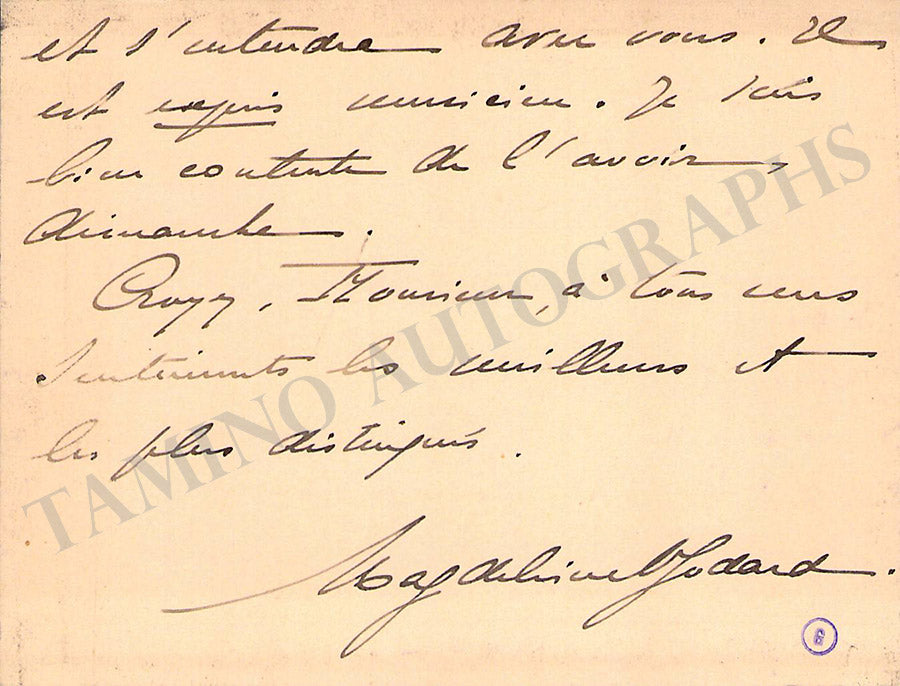 et s'entendre avec vous. Il
est exquis musicien. Je suis
bien contente de l'avoir
dimanche.
Croyez, Monsieur, à tous mes
sentiments les meilleurs et
les plus distingués.
Magdeleine Godard.
G
TAMINO AUTOGRAPHS